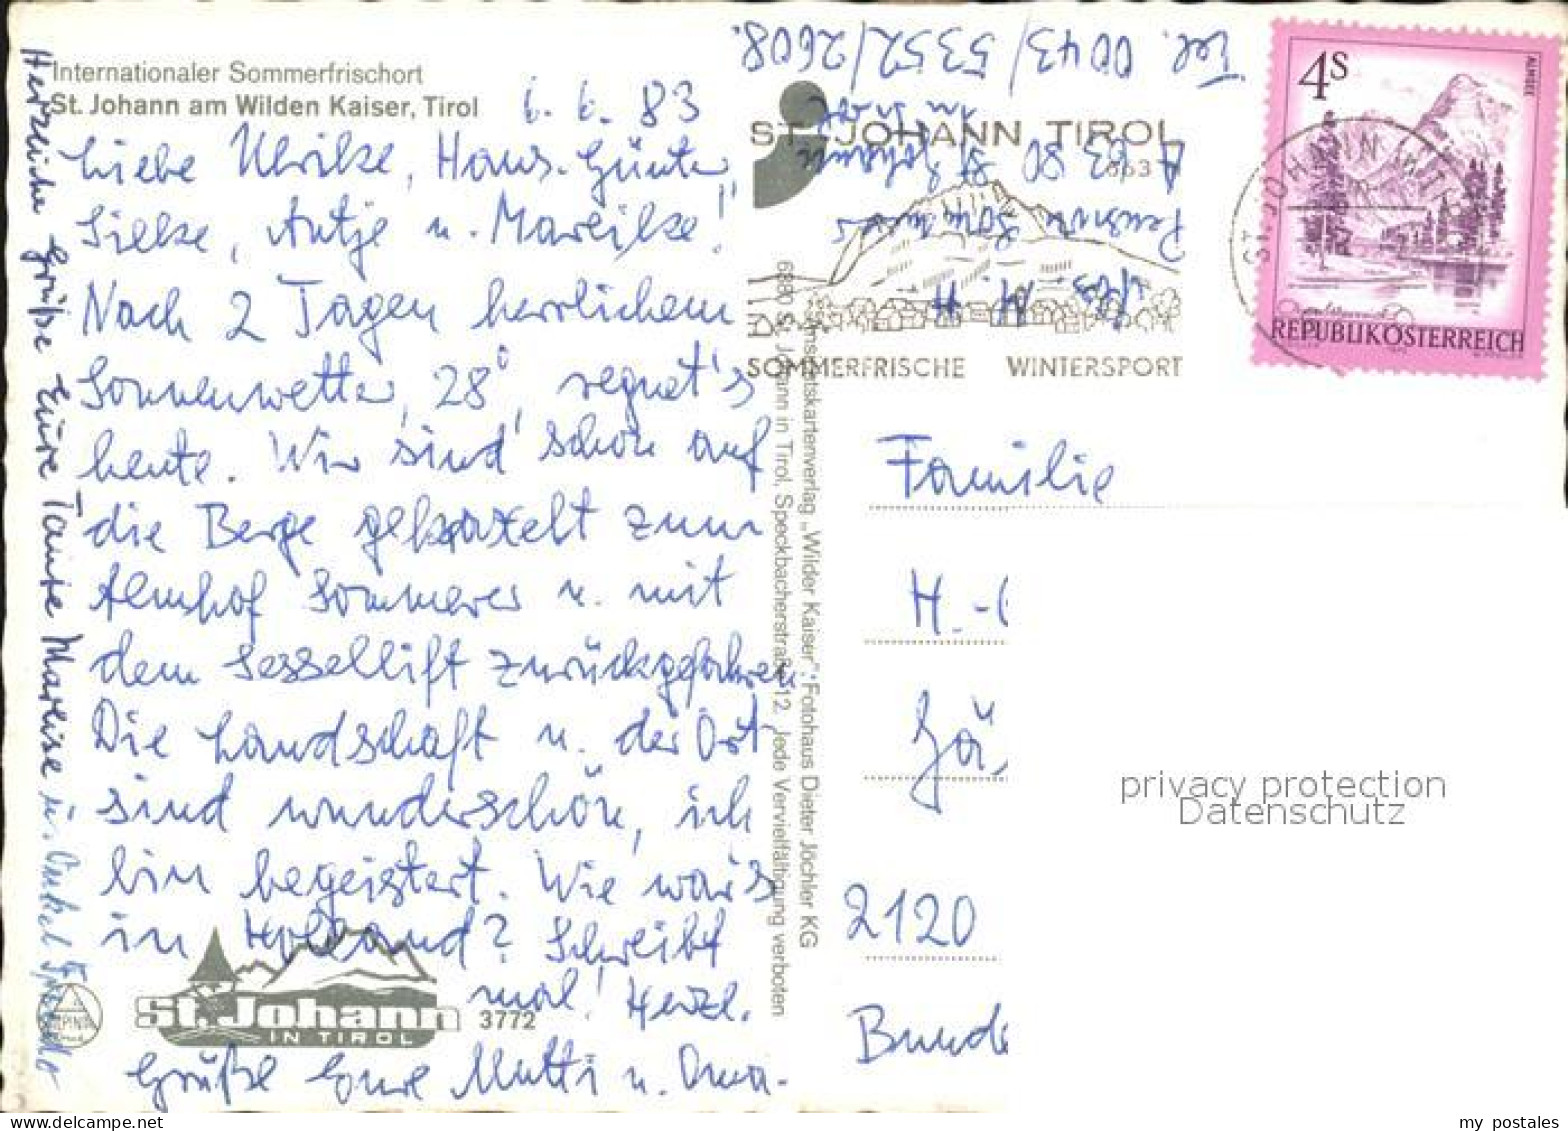 Internationaler Sommerfrischort
St. Johann am Wilden Kaiser, Tirol
6. 6. 83
Liebe Ulrike, Hans-Günter,
Silke, Antje u. Mareike!
Nach 2 Tagen herrlichem
Sonnenwetter, 28°, regnet's
heute. Wir sind schon auf
die Berge gekraxelt zum
Almhof Sommerer u. mit
dem Sessellift zurückgefahren
Die Landschaft u. der Ort
sind wunderschön, ich
bin begeistert. Wie war's
in Holland? Schreibt
mal! Herzl.
Grüße Eure Mutti u. Oma.
Herzliche Grüße Eure Tante Marlise u. Onkel
St. Johann
IN TIROL
3772
Kunstkartenverlag „Wilder Kaiser", Fotohaus Dieter Jöchler KG
6380 St. Johann in Tirol, Speckbacherstraße 12. Jede Vervielfältigung verboten
Tel. 0043/5352/2608.
A 63 80 St. Johann
Pension
ST. JOHANN TIROL
SOMMERFRISCHE WINTERSPORT
ST. JOHANN
4S
ALMSEE
REPUBLIK ÖSTERREICH
Familie
H.-
2120
privacy protection
Datenschutz
my postales